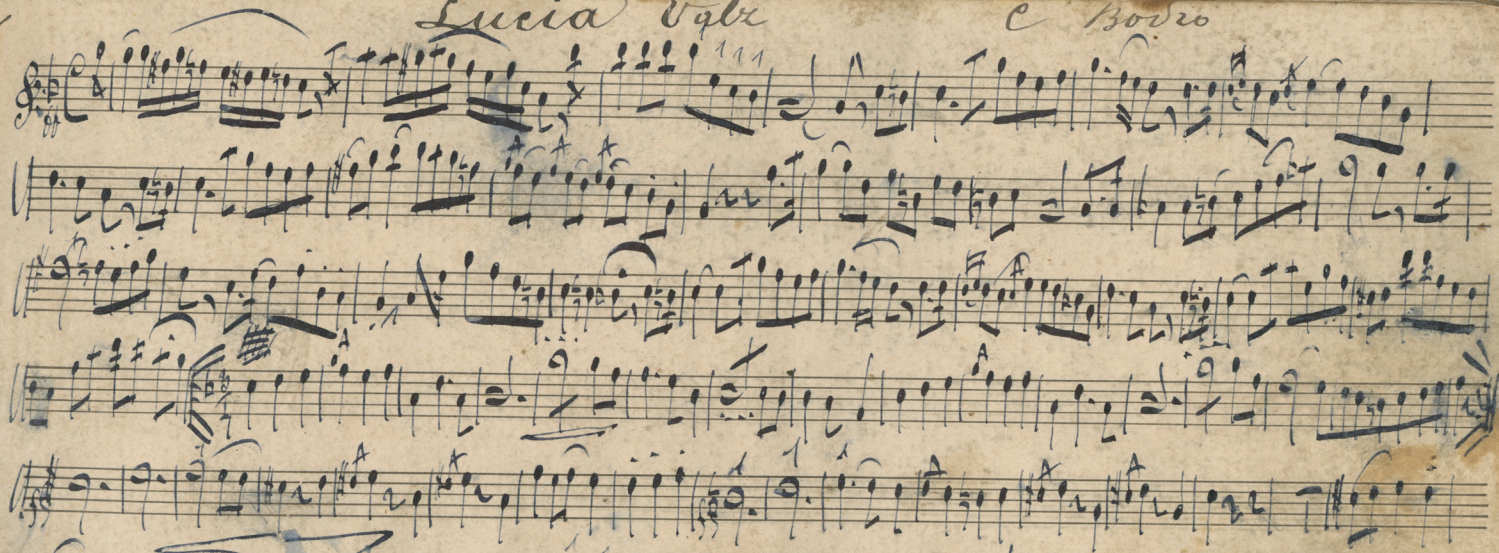 Lucia Vglz C Bodro